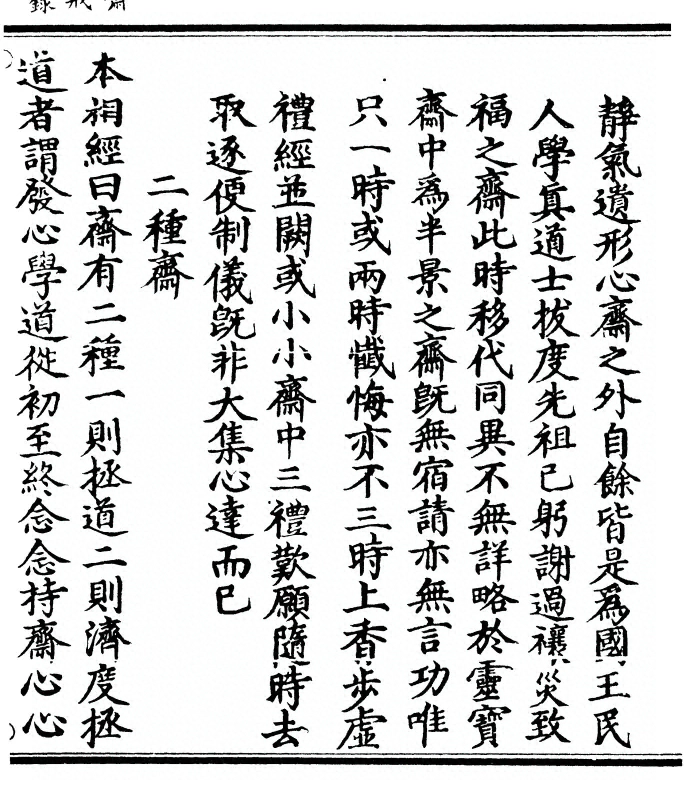 靜氣遺形心齋之外自餘皆是爲國王民
人學真道士拔度先祖己躬謝過禳災致
福之齋此時移代同異不無詳略於靈寶
齋中爲半景之齋既無宿請亦無言功唯
只一時或兩時懺悔亦不三時上香步虛
禮經並闕或小小齋中三禮歎願隨時去
取逐便制儀既非大集心達而已
二種齋
本相經曰齋有二種一則拯道二則濟度拯
道者謂發心學道從初至終念念持齋心心